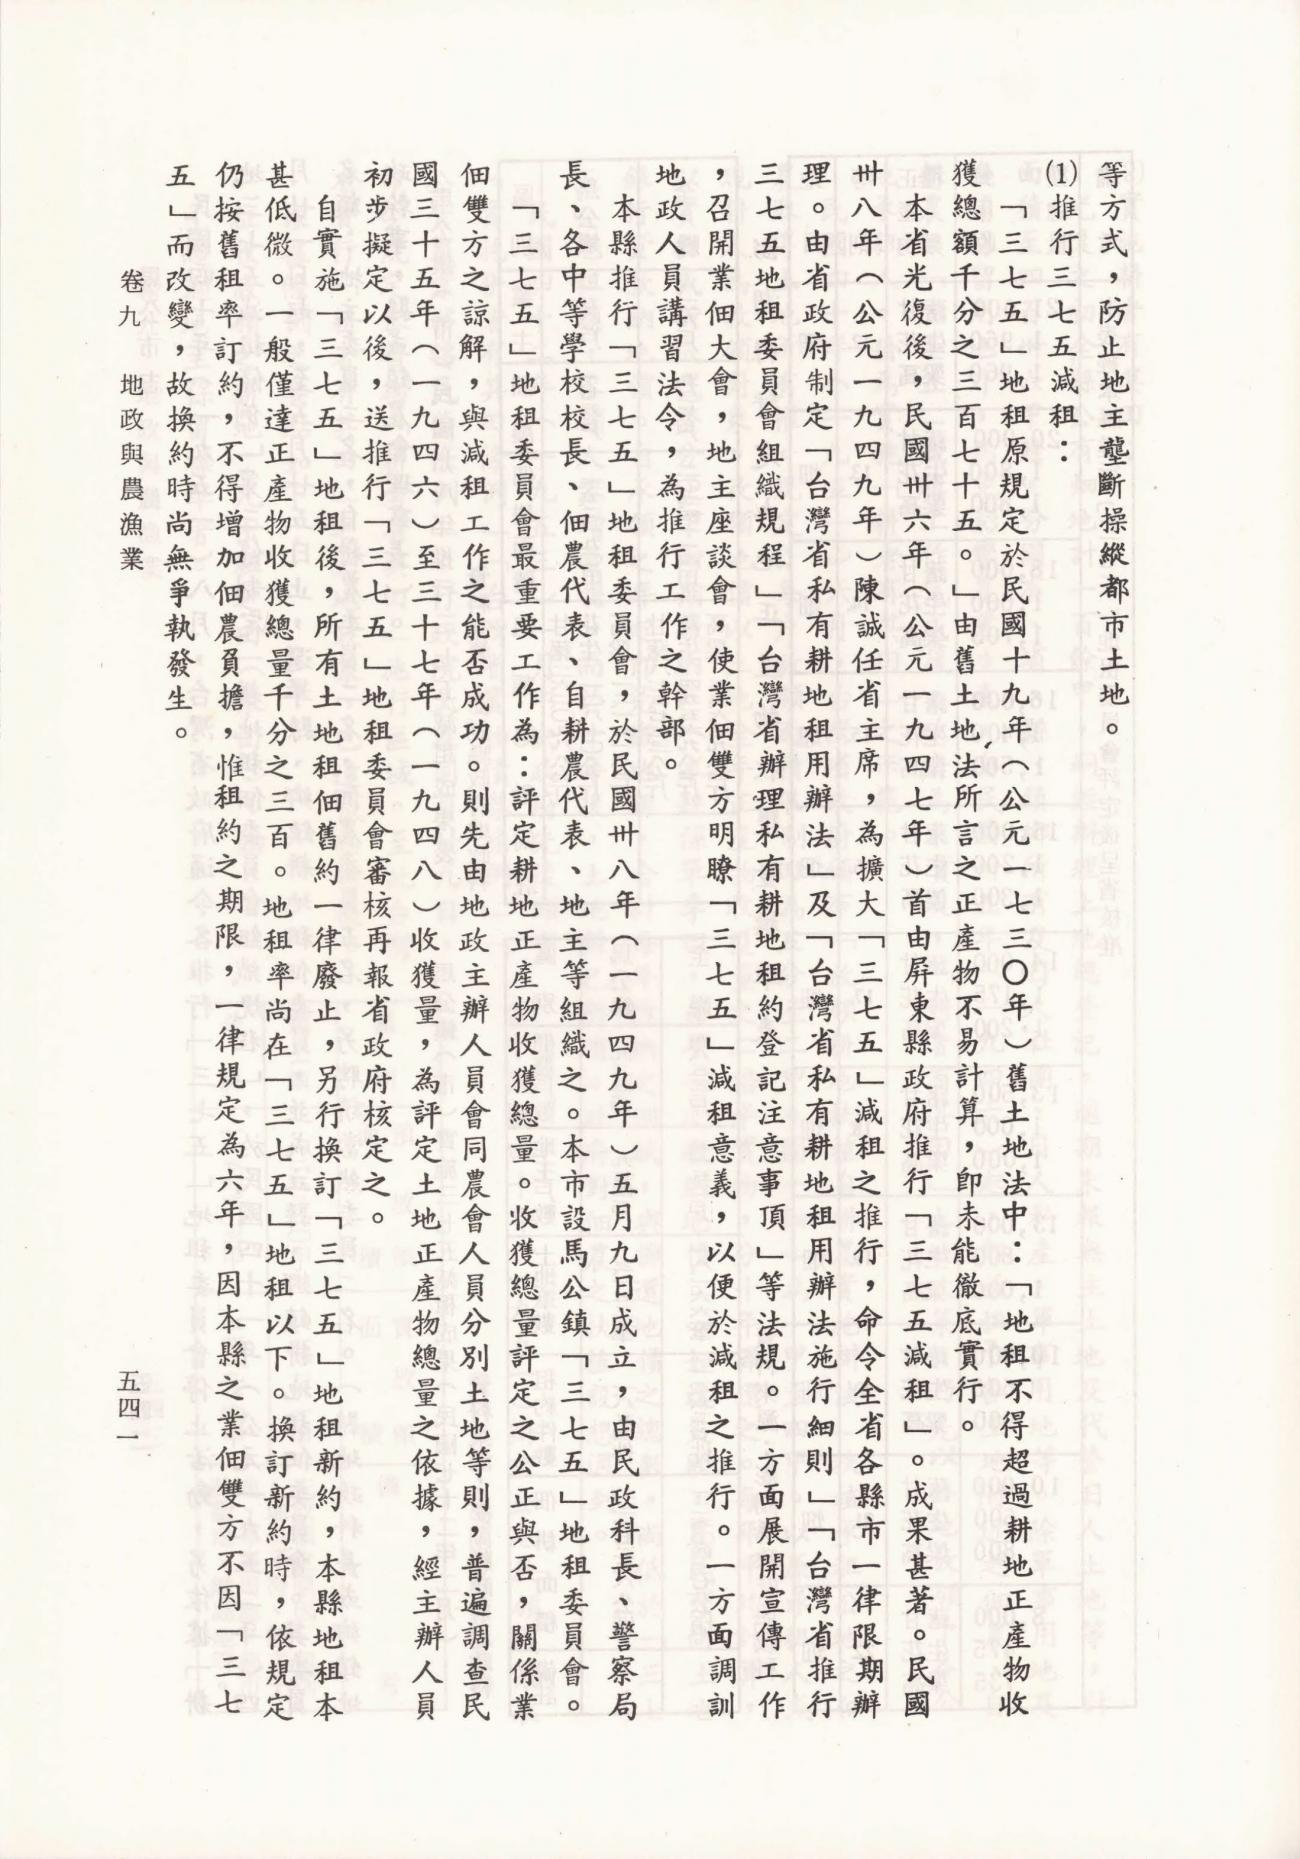 等方式，防止地主壟斷操縱都市土地。
⑴推行三七五減租：
「三七五」地租原規定於民國十九年（公元一七三〇年）舊土地法中：「地租不得超過耕地正產物收
獲總額千分之三百七十五。」由舊土地法所言之正產物不易計算，卽未能徹底實行。
本省光復後，民國卅六年（公元一九四七年）首由屛東縣政府推行「三七五減租」。成果甚著。民國
卅八年（公元一九四九年）陳誠任省主席，為擴大「三七五」減租之推行，命令全省各縣市一律限期辦
理。由省政府制定「台灣省私有耕地租用辦法」及「台灣省私有耕地租用辦法施行細則」「台灣省推行
三七五地租委員會組織規程」「台灣省辦理私有耕地租約登記注意事項」等法規。一方面展開宣傳工作
，召開業佃大會，地主座談會，使業佃雙方明瞭「三七五」減租意義，以便於減租之推行。一方面調訓
地政人員講習法令，為推行工作之幹部。
本縣推行「三七五」地租委員會，於民國卅八年（一九四九年）五月九日成立，由民政科長、警察局
長、各中等學校校長、佃農代表、自耕農代表、地主等組織之。本市設馬公鎮「三七五」地租委員會。
「三七五」地租委員會最重要工作為：評定耕地正產物收獲總量。收獲總量評定之公正與否，關係業
佃雙方之諒解，與減租工作之能否成功。則先由地政主辦人員會同農會人員分別土地等則，普遍調查民
國三十五年（一九四六）至三十七年（一九四八）收獲量，為評定土地正產物總量之依據，經主辦人員
初步擬定以後，送推行「三七五」地租委員會審核再報省政府核定之。
自實施「三七五」地租後，所有土地租佃舊約一律廢止，另行換訂「三七五」地租新約，本縣地租本
甚低微。一般僅達正產物收獲總量千分之三百。地租率尚在「三七五」地租以下。換訂新約時，依規定
仍按舊租率訂約，不得增加佃農負擔，惟租約之期限，一律規定為六年，因本縣之業佃雙方不因「三七
五」而改變，故換約時尚無爭執發生。
卷九　地政與農漁業
五四一